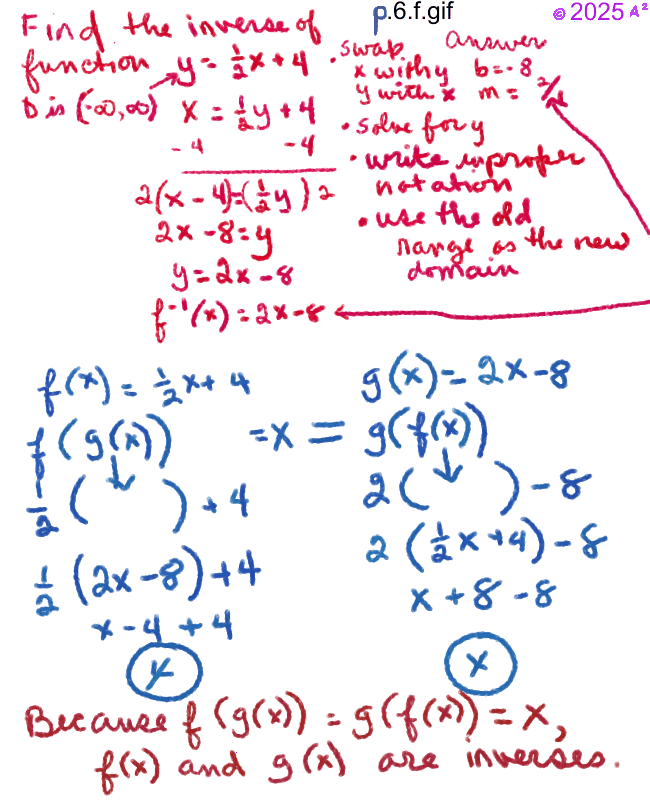 p.6.f.gif
© 2025 A²
Find the inverse of
function y = 1/2x + 4
D is (-∞,∞)
x = 1/2y + 4
-4 -4
2(x - 4)=(1/2y)2
2x - 8 = y
y = 2x - 8
f⁻¹(x) = 2x - 8
• swap
x with y
y with x
• solve for y
• write in proper
notation
• use the old
range as the new
domain
answer
b = -8
m =
f(x) = 1/2x + 4
f(g(x)) = x =
1/2( ) + 4
1/2(2x - 8) + 4
x - 4 + 4
x
g(x) = 2x - 8
g(f(x))
2( ) - 8
2(1/2x + 4) - 8
x + 8 - 8
x
Because f(g(x)) = g(f(x)) = x,
f(x) and g(x) are inverses.